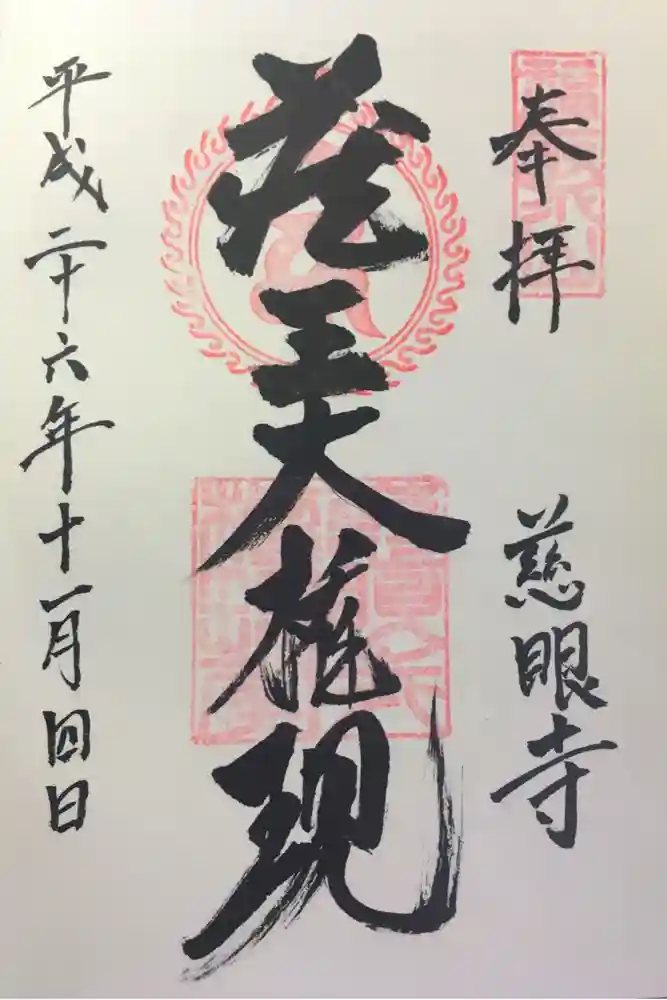 奉拝
慈眼寺
蔵王大権現
平成二十六年十一月四日